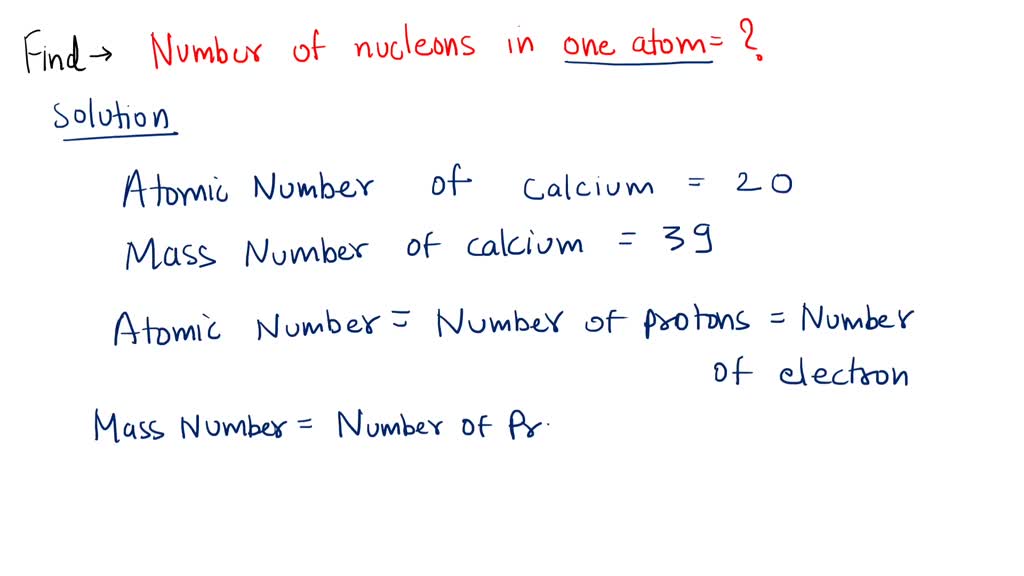 Find → Number of nucleons in one atom = ?
Solution
Atomic Number of calcium = 20
Mass Number of calcium = 39
Atomic Number = Number of protons = Number
of electron
Mass Number = Number of Pr